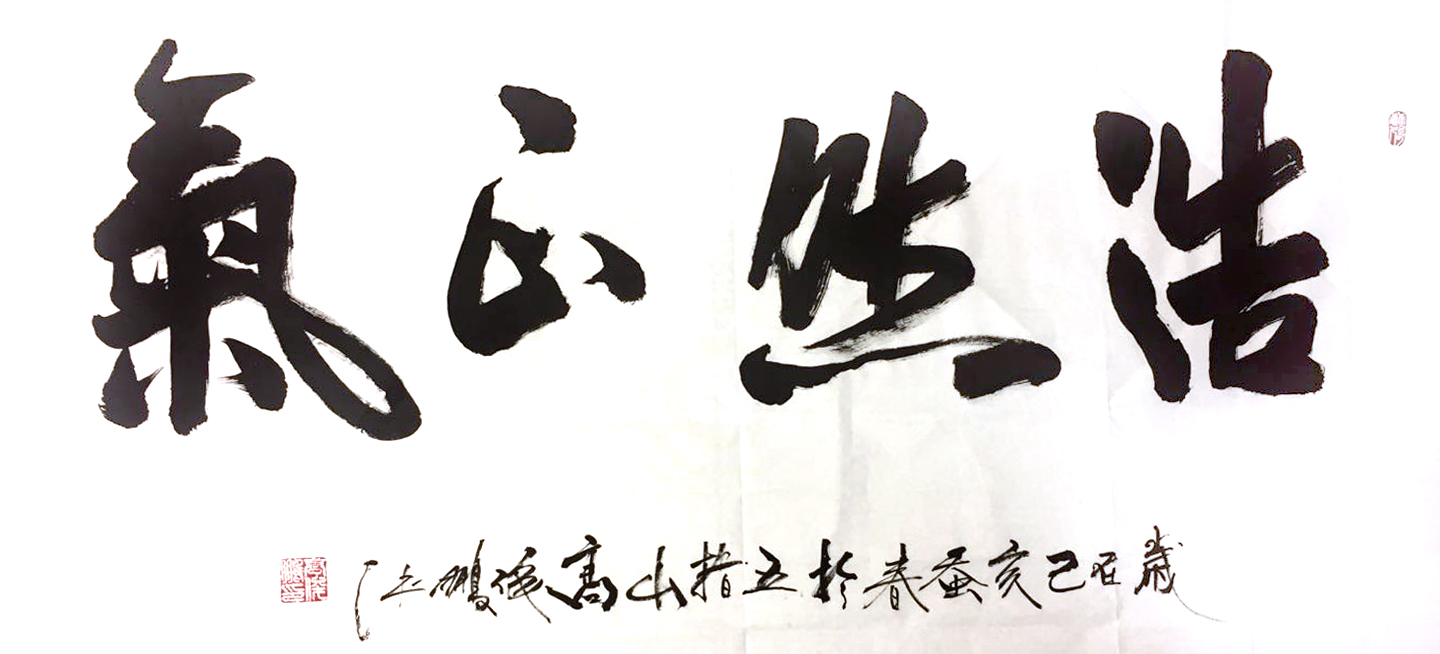 浩然正氣
歲在己亥蚕春於五指山高俊鵬上